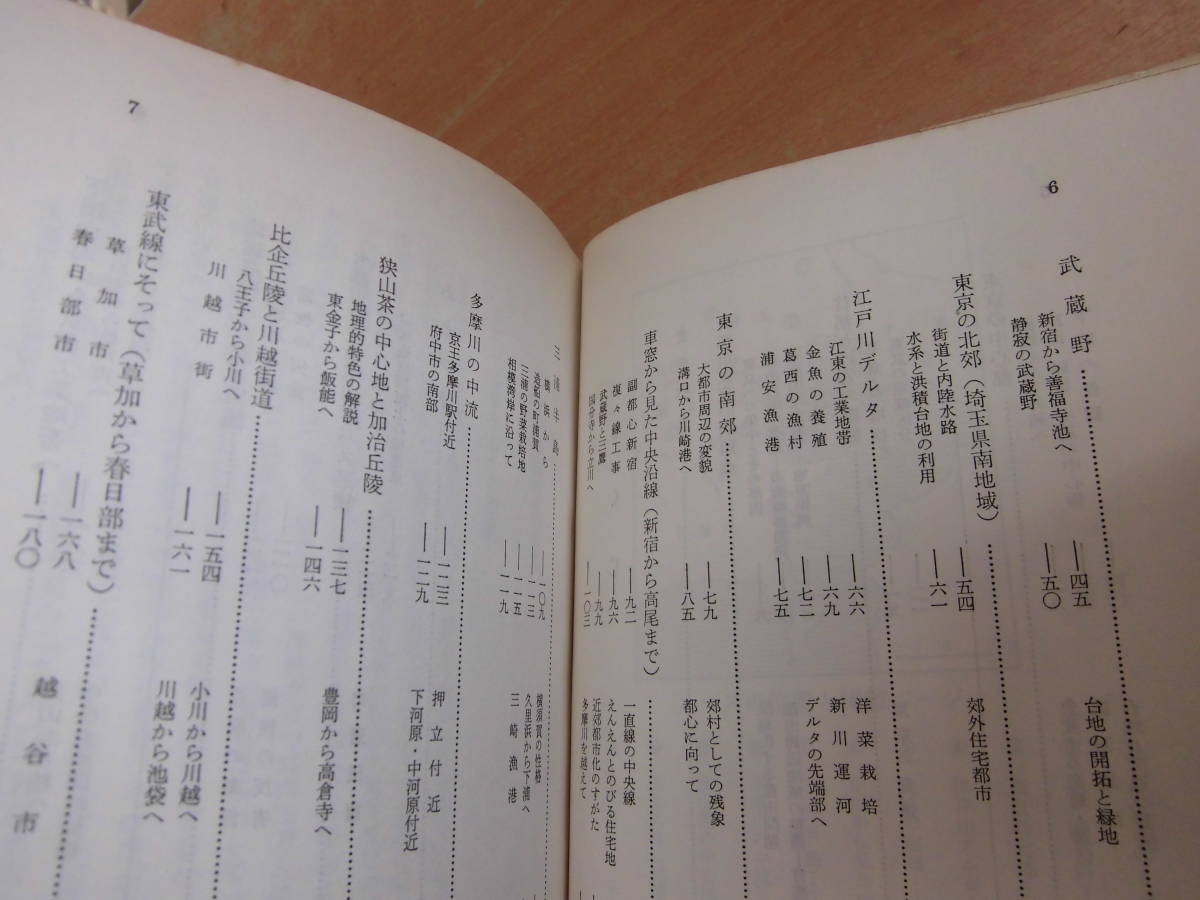 6
武蔵野
新宿から善福寺池へ――四五
静寂の武蔵野――五〇
台地の開拓と緑地
東京の北郊（埼玉県南地域）
街道と内陸水路――五四
水系と洪積台地の利用――六一
郊外住宅都市
江戸川デルタ
江東の工業地帯――六六
金魚の養殖――六九
葛西の漁村――七二
浦安漁港――七五
洋菜栽培
新川運河
デルタの先端部へ
東京の南郊
大都市周辺の変貌――七九
溝口から川崎港へ――八五
郊村としての残象
都心に向って
車窓から見た中央沿線（新宿から高尾まで）
副都心新宿――九二
複々線工事――九六
武蔵野と三鷹――九九
国分寺から立川へ――一〇三
一直線の中央線
えんえんとのびる住宅地
近郊都市化のすがた
多摩川を越えて
7
三浦半島
横浜から――一〇九
造船の町浦賀――一一三
三浦の野菜栽培地――一一五
相模湾岸に沿って――一一九
横須賀の性格
久里浜から下浦へ
三崎漁港
多摩川の中流
京王多摩川駅付近――一二三
府中市の南部――一二九
押立付近
下河原・中河原付近
狭山茶の中心地と加治丘陵
地理的特色の解説――一三七
東金子から飯能へ――一四六
豊岡から高倉寺へ
比企丘陵と川越街道
八王子から小川へ――一五四
川越市街――一六一
小川から川越へ
川越から池袋へ
東武線にそって（草加から春日部まで）
草加市――一六八
春日部市――一八〇
越谷市